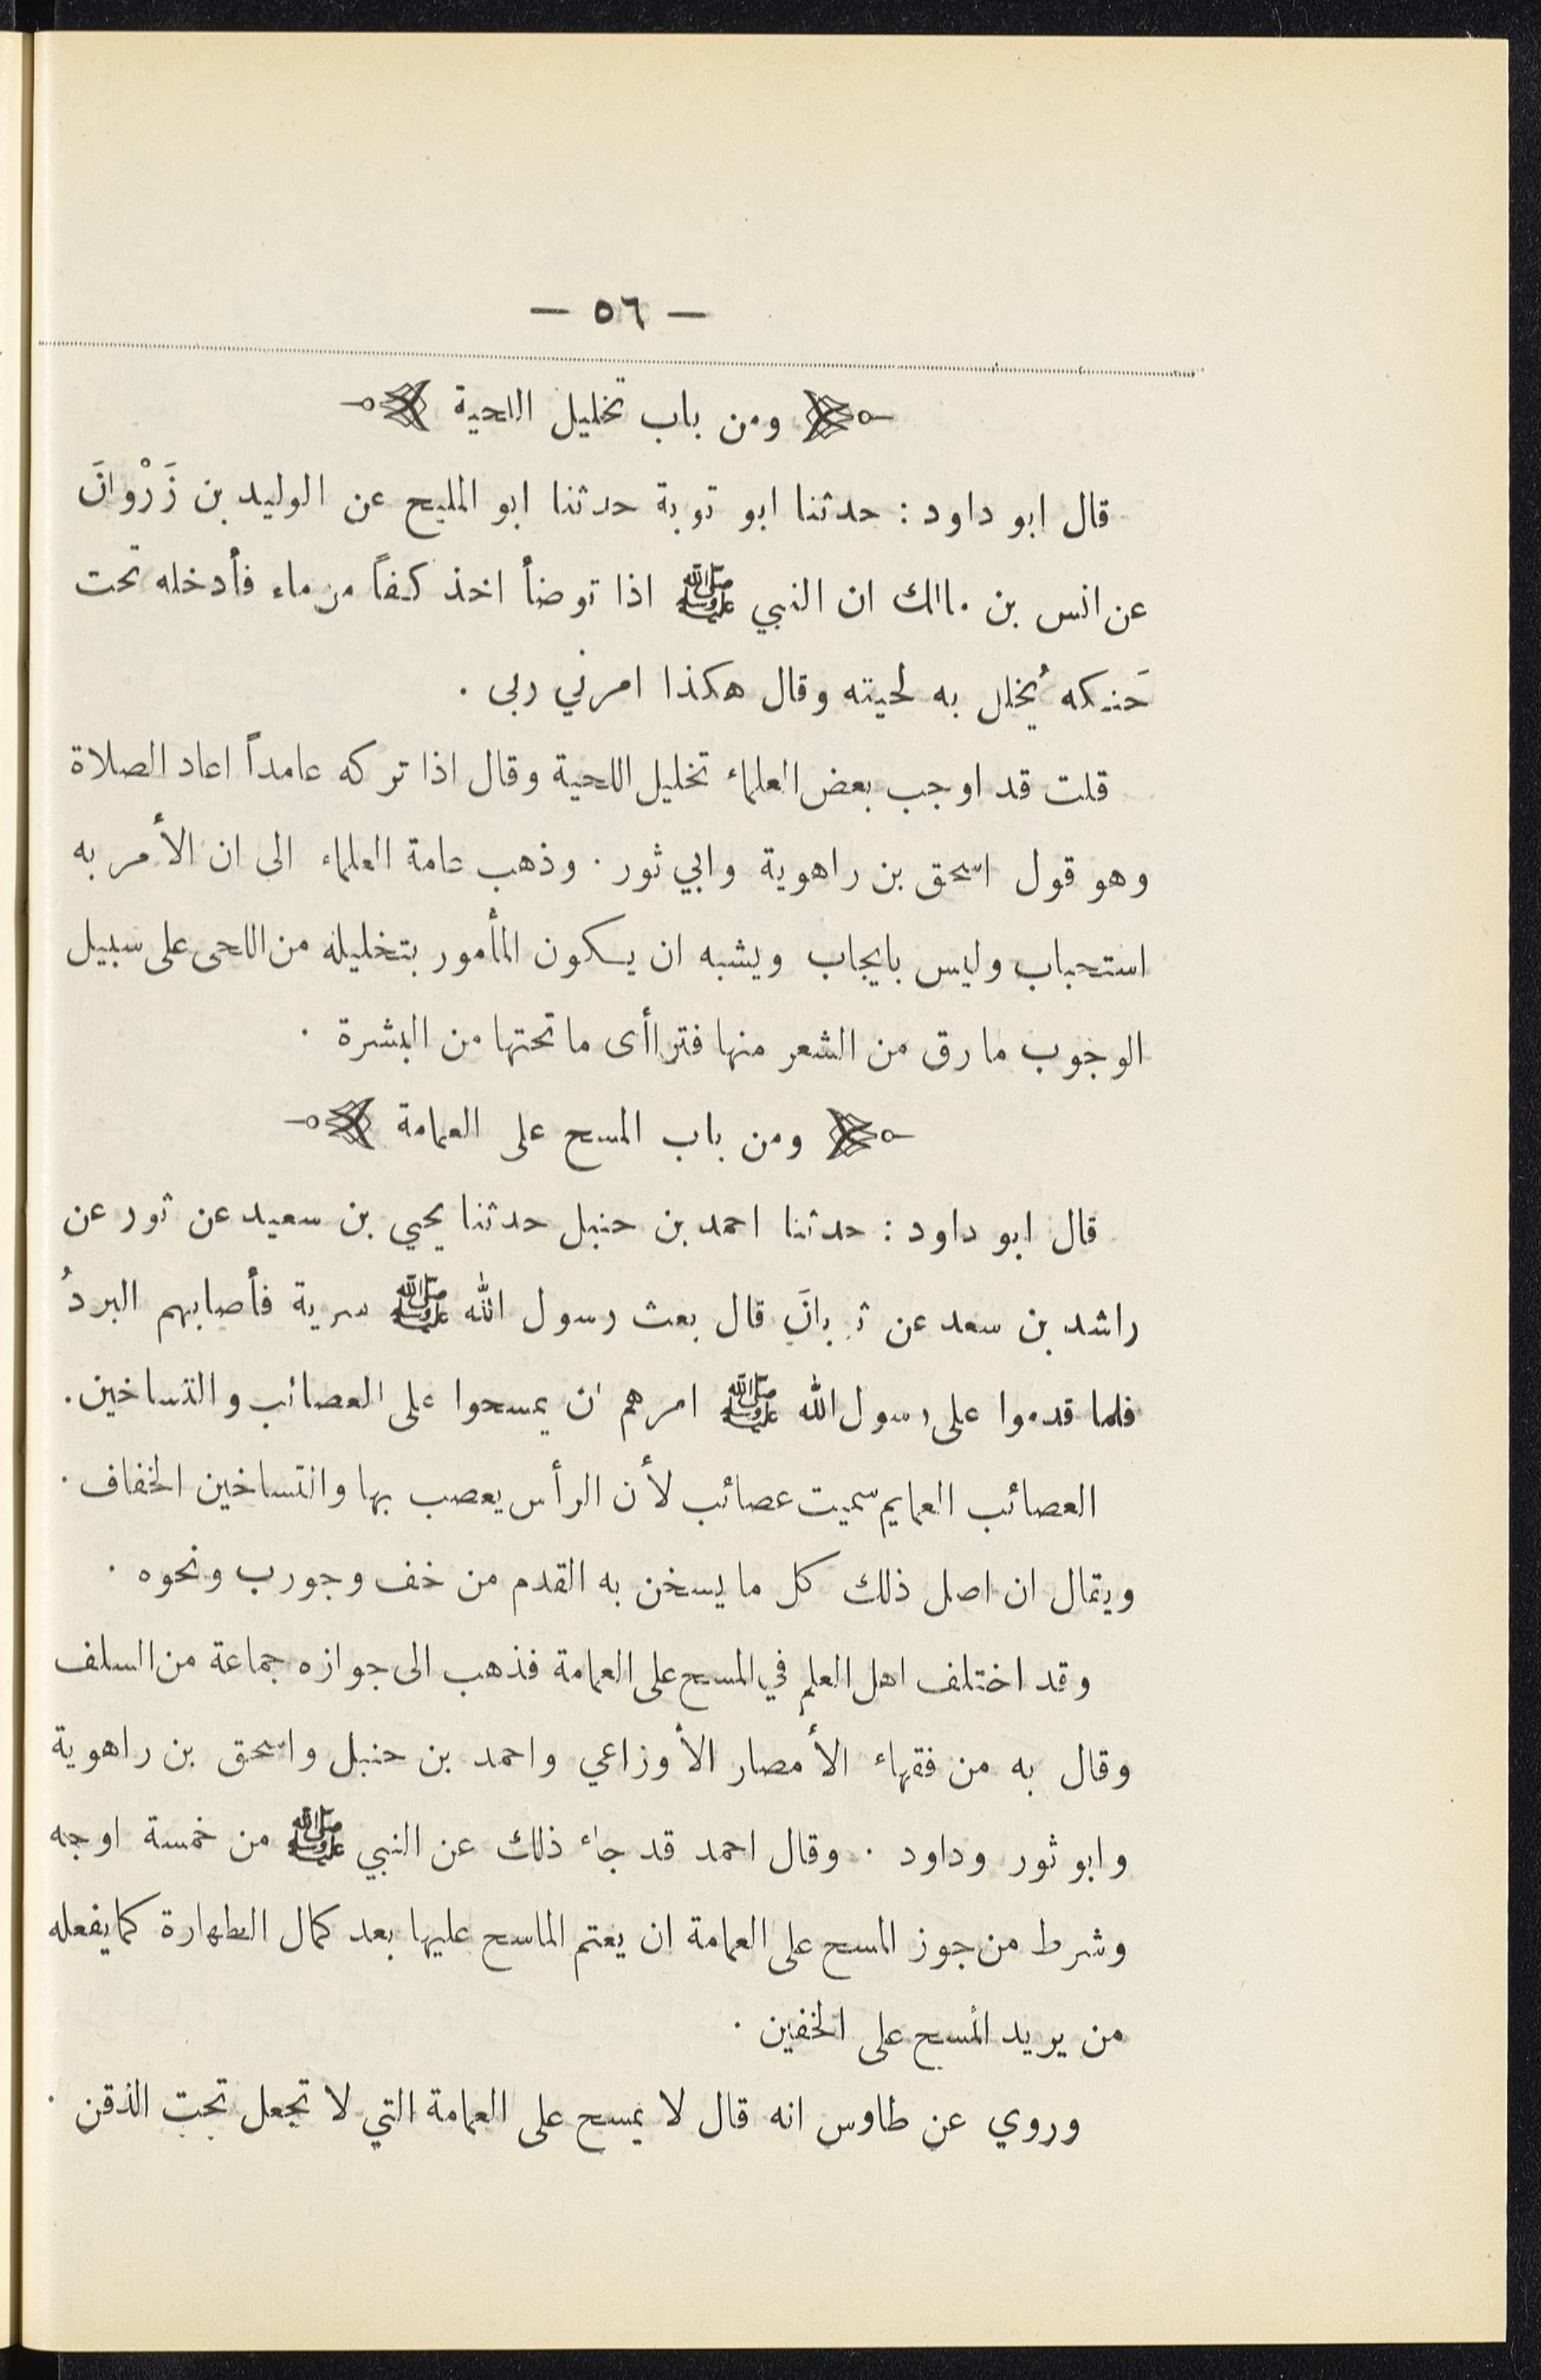 — ٥٦ —
ومن باب تخليل اللحية
قال ابو داود : حدثنا ابو توبة حدثنا ابو المليح عن الوليد بن زَرْوانَ
عن انس بن مالك ان النبي ﷺ اذا توضأ اخذ كفاً من ماء فأدخله تحت
حَنكه يُخلل به لحيته وقال هكذا امرني ربى .
قلت قد اوجب بعض العلماء تخليل اللحية وقال اذا تركه عامداً اعاد الصلاة
وهو قول اسحق بن راهوية وابي ثور . وذهب عامة العلماء الى ان الأمر به
استحباب وليس بايجاب ويشبه ان يكون المأمور بتخليله من اللحى على سبيل
الوجوب ما رق من الشعر منها فتراأى ما تحتها من البشرة .
ومن باب المسح على العمامة
قال ابو داود : حدثنا احمد بن حنبل حدثنا يحيي بن سعيد عن ثور عن
راشد بن سعد عن ثوبانَ قال بعث رسول الله ﷺ سرية فأصابهم البردُ
فلما قدموا على رسول الله ﷺ امرهم ان يمسحوا على العصائب والتساخين .
العصائب العمايم سميت عصائب لأن الرأس يعصب بها والتساخين الخفاف .
ويقال ان اصل ذلك كل ما يسخن به القدم من خف وجورب ونحوه .
وقد اختلف اهل العلم في المسح على العمامة فذهب الى جوازه جماعة من السلف
وقال به من فقهاء الأمصار الأوزاعي واحمد بن حنبل واسحق بن راهوية
وابو ثور وداود . وقال احمد قد جاء ذلك عن النبي ﷺ من خمسة اوجه
وشرط من جوز المسح على العمامة ان يعتم الماسح عليها بعد كمال الطهارة كما يفعله
من يريد المسح على الخفين .
وروي عن طاوس انه قال لا يمسح على العمامة التي لا تجعل تحت الذقن .